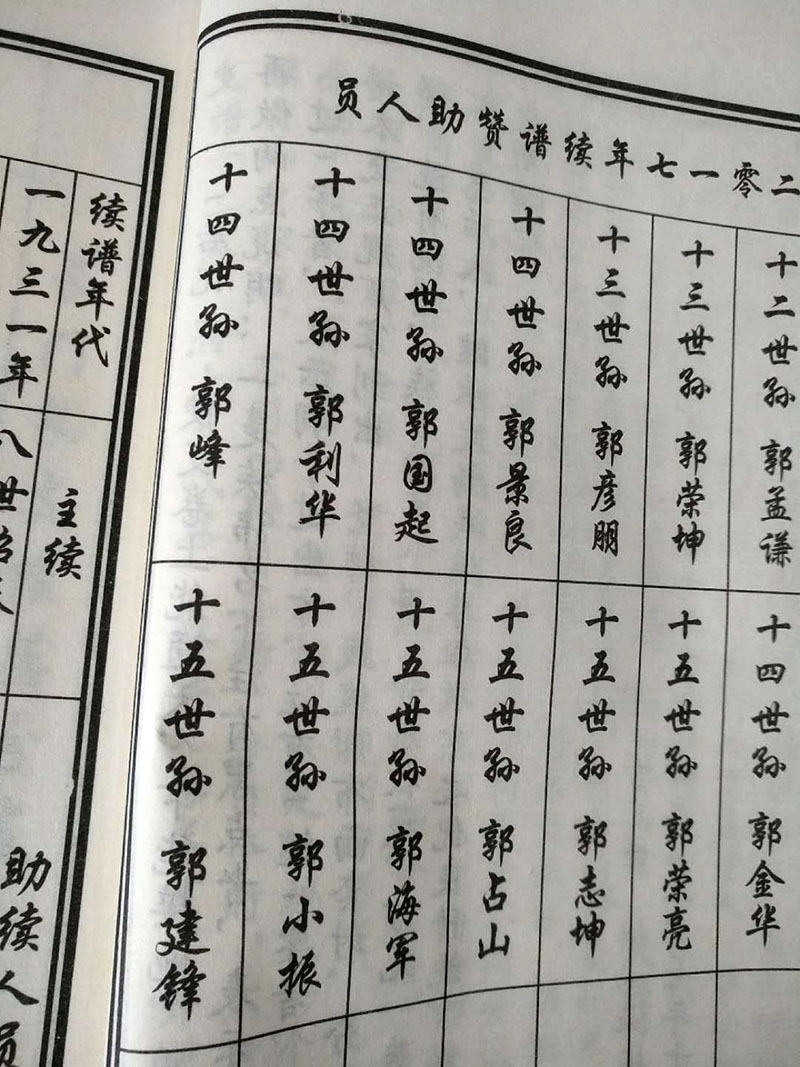 二零一七年续谱赞助人员
十二世孙 郭孟谦
十三世孙 郭荣坤
十三世孙 郭彦朋
十四世孙 郭景良
十四世孙 郭国起
十四世孙 郭利华
十四世孙 郭峰
十四世孙 郭金华
十五世孙 郭荣亮
十五世孙 郭志坤
十五世孙 郭占山
十五世孙 郭海军
十五世孙 郭小振
十五世孙 郭建锋
续谱年代
主续
助续人员
一九三一年
八世